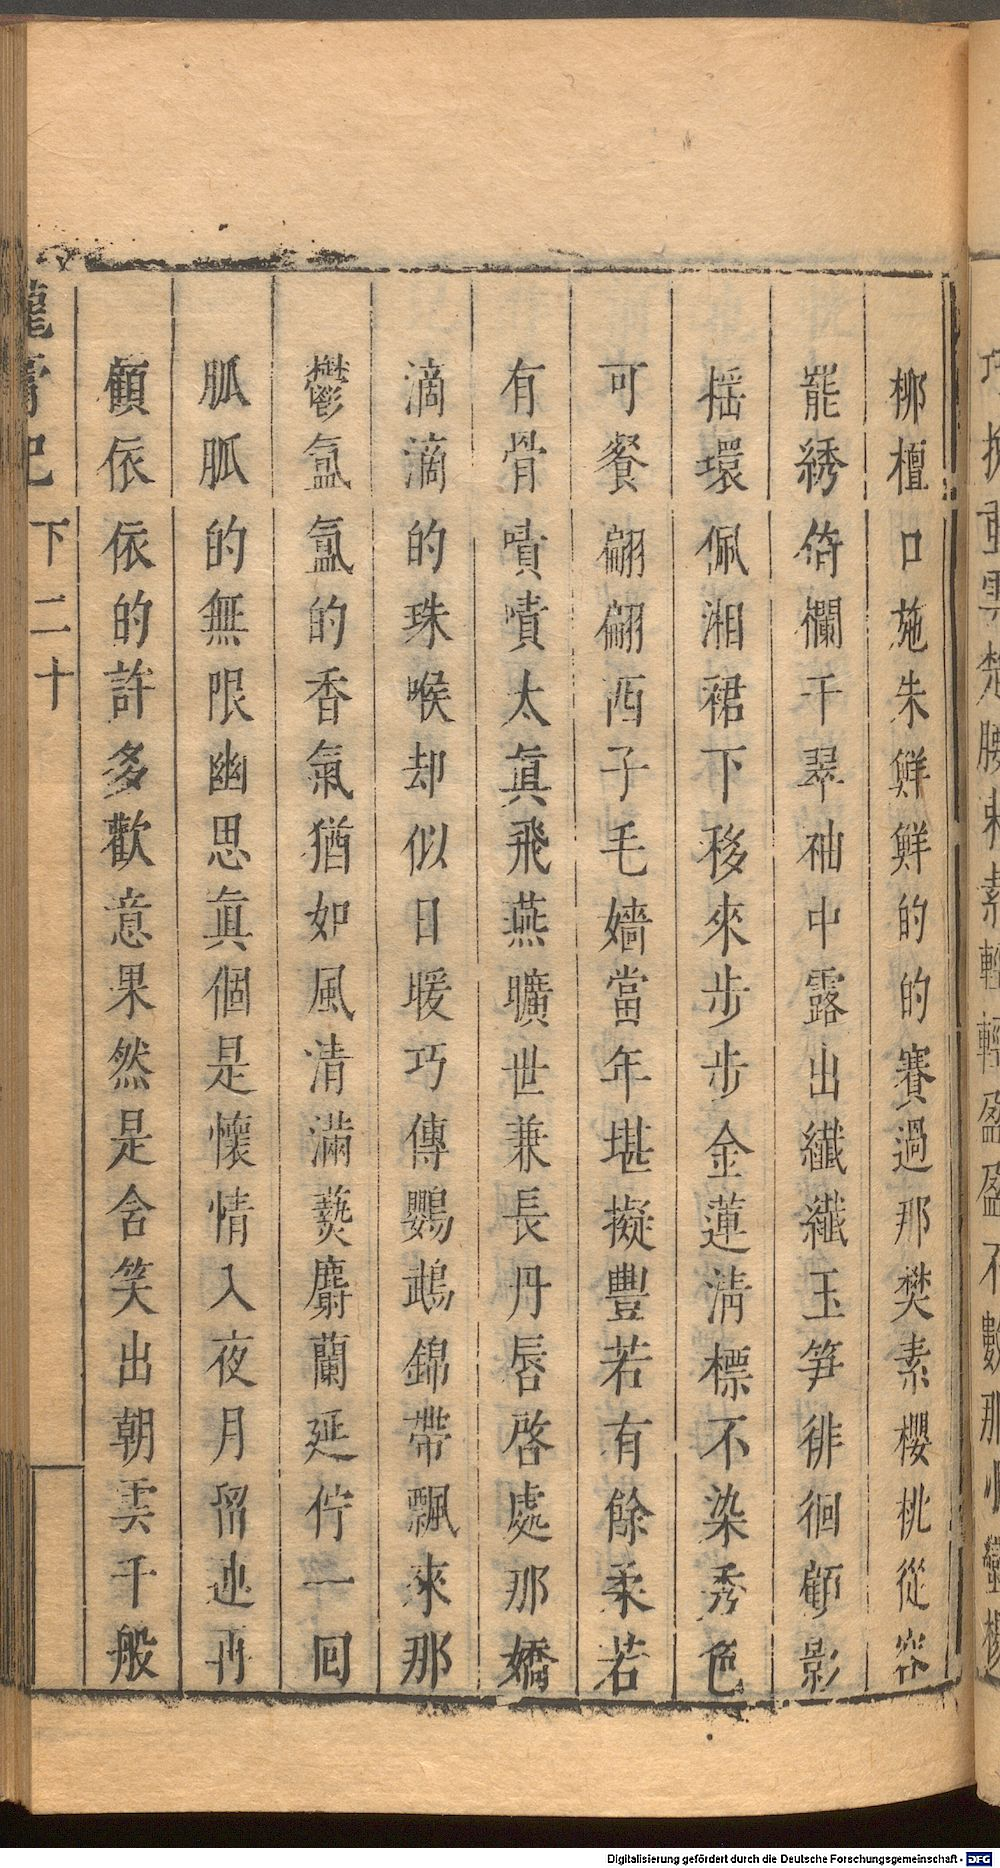 柳檀口施朱鮮鮮的的賽過那樊素櫻桃從容
罷綉倚欄干翠袖中露出纖纖玉笋徘徊顧影
揺環佩湘裙下移來步步金蓮清標不染秀色
可餐翩翩西子毛嬙當年堪擬豐若有餘柔若
有骨嘖嘖太真飛燕曠世兼長丹唇啓處那嬌
滴滴的珠喉却似日暖巧傳鸚鵡錦帶飄來那
鬱氳氳的香氣猶如風清滿爇麝蘭延佇一回
胍胍的無限幽思真個是懷情入夜月留連再
顧依依的許多歡意果然是含笑出朝雲千般
龍膏記 下二十
Digitalisierung gefördert durch die Deutsche Forschungsgemeinschaft - DFG